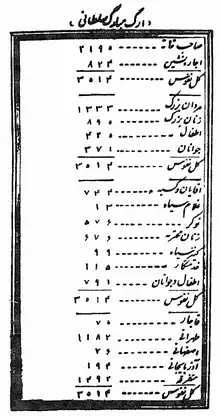 (ارگ مبارکه سلطانی)
صاحب خانه ۲۱۹۰
اجاره نشین ۸۲۴
کل نفوس ۳۰۱۴
مردان بزرگ
زنان بزرگ ۸۹۵
اطفال
جوانان ۳۷۱
کل نفوس ۳۰۱۴
آقایان و کسبه ۷۴۴
غلام سیاه ۱۳
نوکر ۵۷۶
زنان محترمه ۶۷۶
کنیز سیاه ۹۹
خدمتکار ۱۱۵
اطفال و جوانان ۷۹۱
کل نفوس ۳۰۱۴
قاجار ۷۵
طهرانی ۱۱۸۲
اصفهانی
آذربایجانی ۱۹۴
متفرقه
کل نفوس ۳۰۱۴